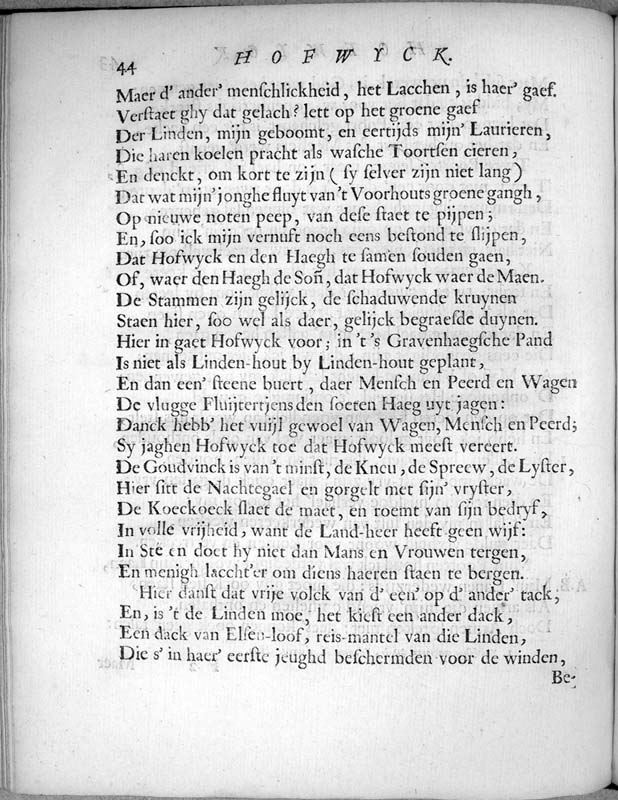 44
HOFWYCK.
Maer d' ander' menſchlickheid, het Lacchen, is haer' gaef.
Verſtaet ghy dat gelach? lett op het groene gaef
Der Linden, mijn geboomt, en eertijds mijn' Laurieren,
Die haren koelen pracht als waſche Toortſen cieren,
En denckt, om kort te zijn (ſy ſelver zijn niet lang)
Dat wat mijn' jonghe fluyt van 't Voorhouts groene gangh,
Op nieuwe noten peep, van deſe ſtaet te pijpen;
En, ſoo ick mijn vernuft noch eens beſtond te ſlijpen,
Dat Hofwyck en den Haegh te ſamen ſouden gaen,
Of, waer den Haegh de Soñ, dat Hofwyck waer de Maen.
De Stammen zijn gelijck, de ſchaduwende kruynen
Staen hier, ſoo wel als daer, gelijck begraeſde duynen.
Hier in gaet Hofwyck voor; in 't 's Gravenhaegſche Pand
Is niet als Linden-hout by Linden-hout geplant,
En dan een' ſteene buert, daer Menſch en Peerd en Wagen
De vlugge Fluijtertjens den ſoeten Haeg uyt jagen:
Danck hebb' het vuijl gewoel van Wagen, Menſch en Peerd;
Sy jaghen Hofwyck toe dat Hofwyck meeſt vereert.
De Goudvinck is van 't minſt, de Kneu, de Spreew, de Lyſter,
Hier ſitt de Nachtegael en gorgelt met ſijn' vryſter,
De Koeckoeck ſlaet de maet, en roemt van ſijn bedryf,
In volle vrijheid, want de Land-heer heeft geen wijf:
In Sté en doet hy niet dan Mans en Vrouwen tergen,
En menigh laccht'er om diens haeren ſtaen te bergen.
Hier danſt dat vrije volck van d' een' op d' ander' tack,
En, is 't de Linden moe, het kieſt een ander dack,
Een dack van Elſen-loof, reis-mantel van die Linden,
Die s' in haer' eerſte jeughd beſchermden voor de winden,
Be-